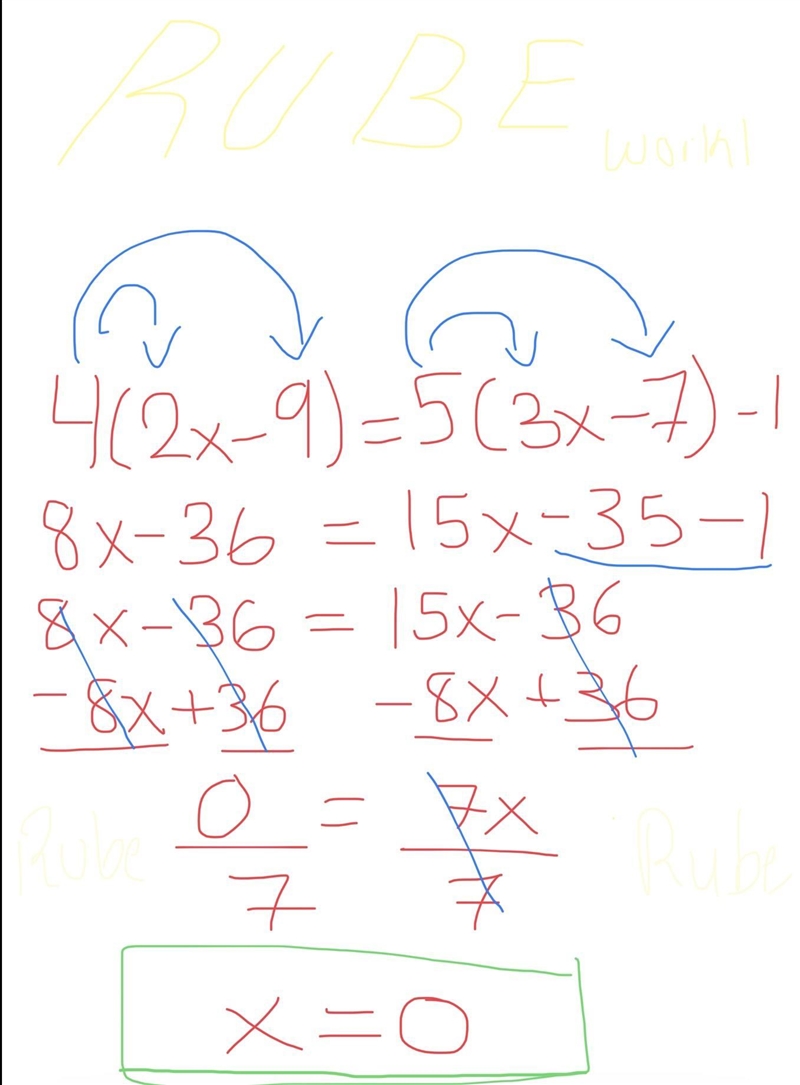 RUBE
world
4(2x-9)=5(3x-7)-1
8x-36 = 15x-35-1
8x-36 = 15x-36
-8x+36 -8x+36
0 = 7x
7 7
Rube Rube
x=0